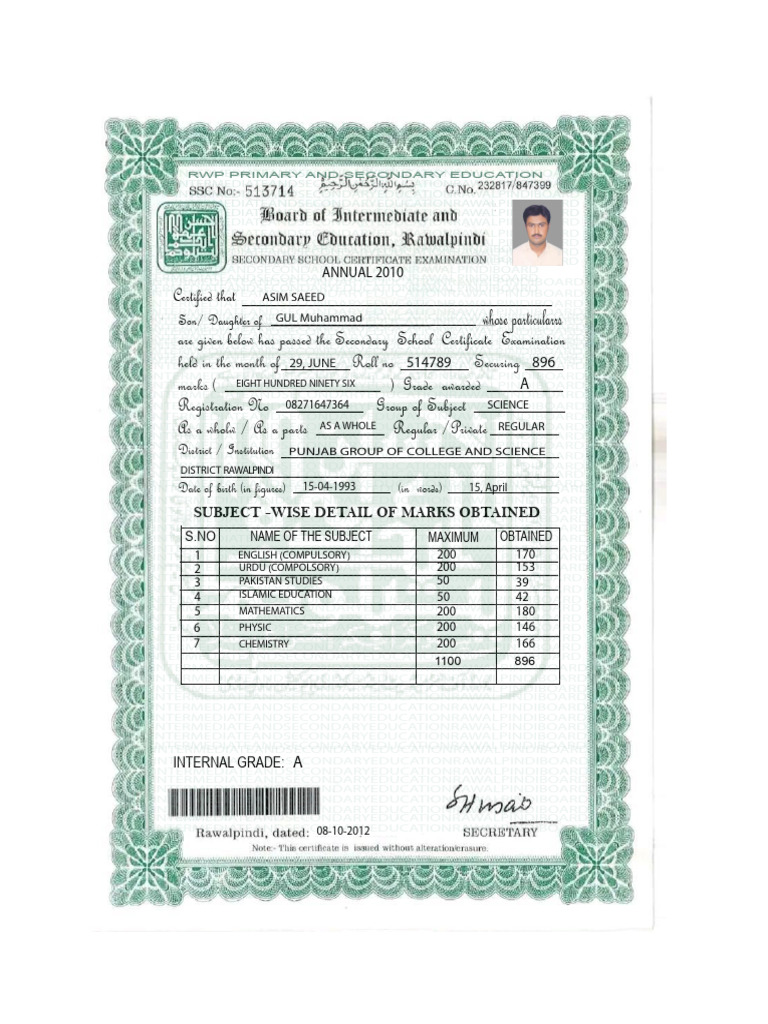 RWP PRIMARY AND SECONDARY EDUCATION
بِسْمِ اللهِ الرَّحْمٰنِ الرَّحِيْمِ
SSC No:- 513714 C.No. 232817/847399
Board of Intermediate and
Secondary Education, Rawalpindi
SECONDARY SCHOOL CERTIFICATE EXAMINATION
ANNUAL 2010
Certified that ASIM SAEED
Son/ Daughter of GUL Muhammad whose particularrs
are given below has passed the Secondary School Certificate Examination
held in the month of 29, JUNE Roll no 514789 Securing 896
marks ( EIGHT HUNDRED NINETY SIX ) Grade awarded A
Registration No 08271647364 Group of Subject SCIENCE
As a wholw / As a parts AS A WHOLE Regular /Private REGULAR
District / Institution PUNJAB GROUP OF COLLEGE AND SCIENCE
DISTRICT RAWALPINDI
Date of birth (in figures) 15-04-1993 (in words) 15, April
SUBJECT -WISE DETAIL OF MARKS OBTAINED
S.NO NAME OF THE SUBJECT MAXIMUM OBTAINED
1 ENGLISH (COMPULSORY) 200 170
2 URDU (COMPOLSORY) 200 153
3 PAKISTAN STUDIES 50 39
4 ISLAMIC EDUCATION 50 42
5 MATHEMATICS 200 180
6 PHYSIC 200 146
7 CHEMISTRY 200 166
1100 896
INTERNAL GRADE: A
Rawalpindi, dated: 08-10-2012 SECRETARY
Note:- This certificate is issued without alteration/erasure.